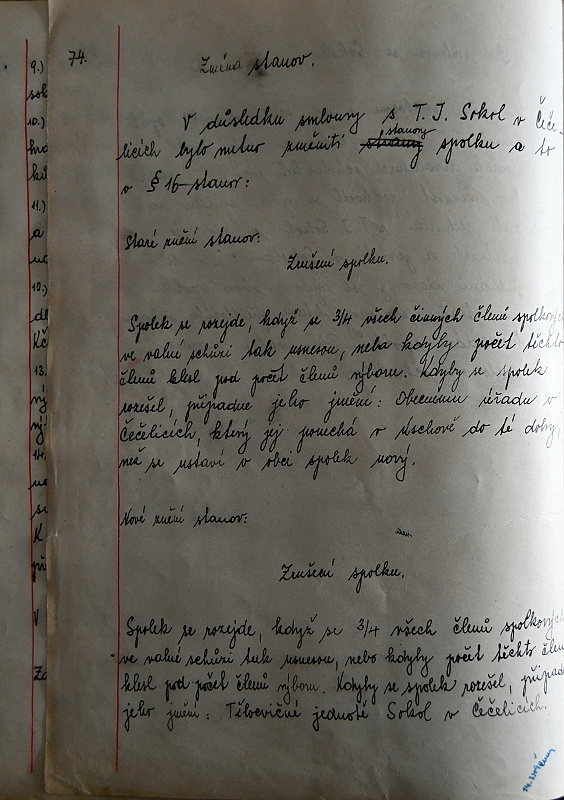 74.
Změna stanov.
V důsledku smlouvy s T. J. Sokol v Čeče-
stanovy
licích bylo nutno změniti strany spolku a to
v § 16 stanov:
Staré znění stanov:
Zrušení spolku.
Spolek se rozejde, když se 3/4 všech činných členů spolkových
ve valné schůzi tak usnesou, neba kdyby počet těchto
členů klesl pod počet členů výboru. Kdyby se spolek
rozešel, připadne jeho jmění: Obecnímu úřadu v
Čečelicích, který jej ponechá v úschově do té doby,
než se ustaví v obci spolek nový.
Nové znění stanov:
Zrušení spolku.
Spolek se rozejde, když se 3/4 všech členů spolkových
ve valné schůzi tak usnesou, nebo kdyby počet těchto člen
klesl pod počet členů výboru. Kdyby se spolek rozešel, připad
jeho jmění: Tělocvičné jednotě Sokol v Čečelicích.
9.)
10.)
11.)
a
12.)
13.
14.
K
V